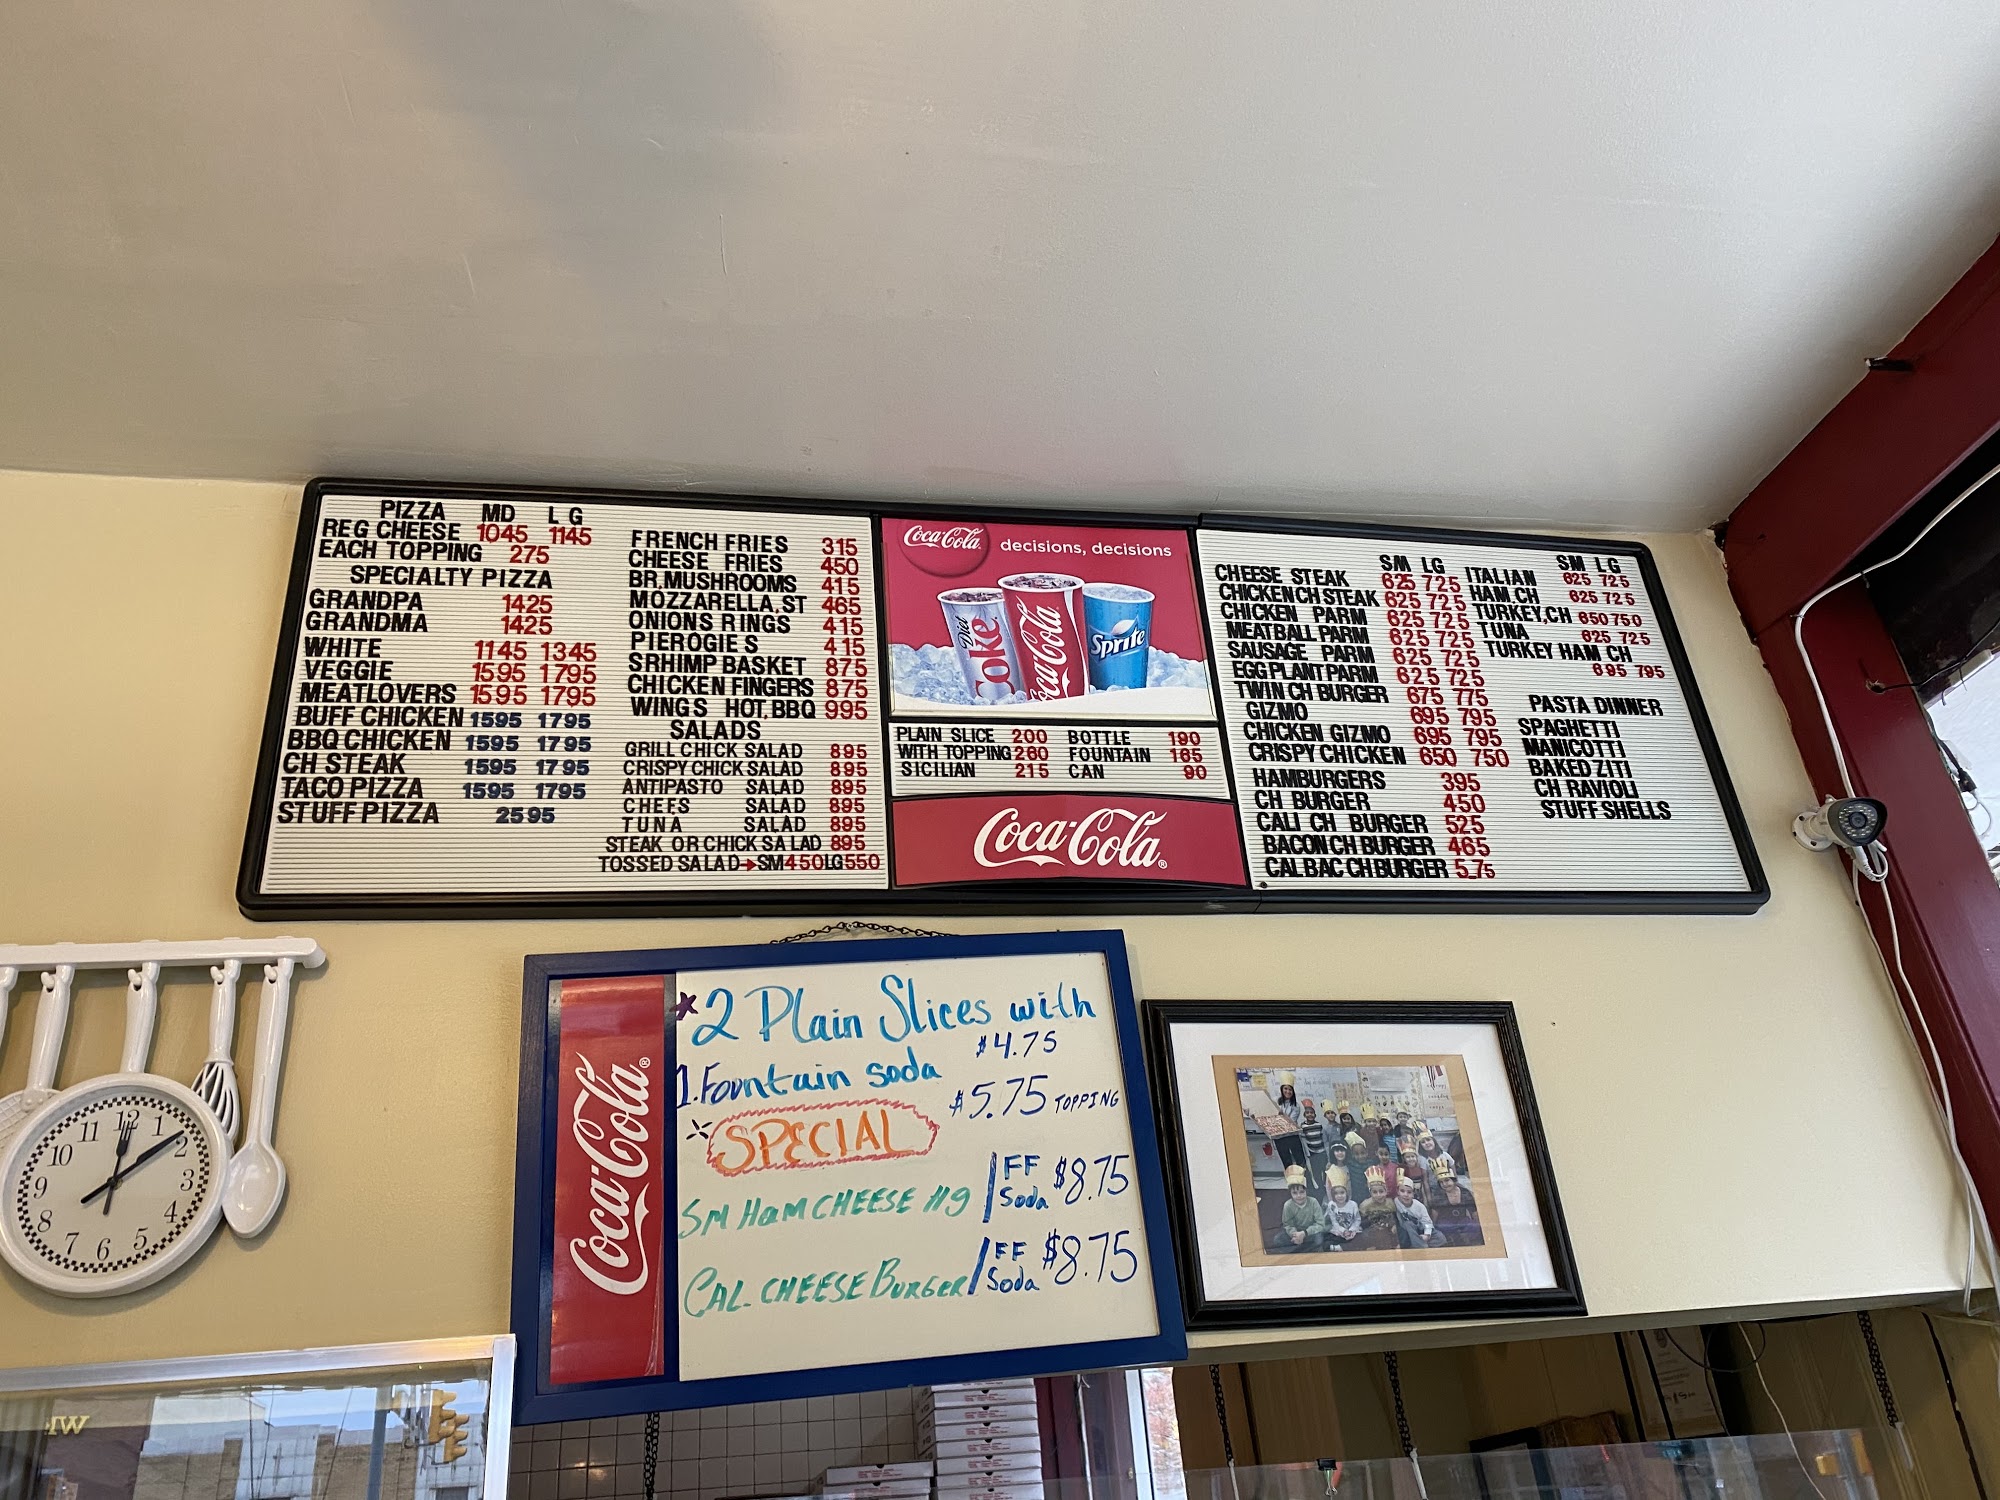 PIZZA MD LG
REG CHEESE 1045 1145
EACH TOPPING 275
SPECIALTY PIZZA
GRANDPA 1425
GRANDMA 1425
WHITE 1145 1345
VEGGIE 1595 1795
MEATLOVERS 1595 1795
BUFF CHICKEN 1595 1795
BBQ CHICKEN 1595 1795
CH STEAK 1595 1795
TACO PIZZA 1595 1795
STUFF PIZZA 2595
FRENCH FRIES 315
CHEESE FRIES 450
BR.MUSHROOMS 415
MOZZARELLA.ST 465
ONIONS RINGS 415
PIEROGIES 415
SRHIMP BASKET 875
CHICKEN FINGERS 875
WINGS HOT.BBQ 995
SALADS
GRILL CHICK SALAD 895
CRISPY CHICK SALAD 895
ANTIPASTO SALAD 895
CHEFS SALAD 895
TUNA SALAD 895
STEAK OR CHICK SALAD 895
TOSSED SALAD SM450LG550
Coca-Cola decisions, decisions
Diet Coke Coca-Cola Sprite
PLAIN SLICE 200 BOTTLE 190
WITH TOPPING 260 FOUNTAIN 165
SICILIAN 215 CAN 90
Coca-Cola
SM LG
CHEESE STEAK 625 725
CHICKEN CH STEAK 625 725
CHICKEN PARM 625 725
MEATBALL PARM 625 725
SAUSAGE PARM 625 725
EGG PLANT PARM 625 725
TWIN CH BURGER 675 775
GIZMO 695 795
CHICKEN GIZMO 695 795
CRISPY CHICKEN 650 750
HAMBURGERS 395
CH BURGER 450
CALI CH BURGER 525
BACON CH BURGER 465
CAL BAC CH BURGER 5.75
SM LG
ITALIAN 625 725
HAM.CH 625 725
TURKEY,CH 650 750
TUNA 625 725
TURKEY HAM CH
695 795
PASTA DINNER
SPAGHETTI
MANICOTTI
BAKED ZITI
CH RAVIOLI
STUFF SHELLS
Coca-Cola
*2 Plain Slices with
1.Fountain soda $4.75
$5.75 TOPPING
SPECIAL
SM HAM CHEESE #9 / FF Soda $8.75
CAL. CHEESE BURGER / FF Soda $8.75
12
1
2
3
4
5
6
7
8
9
10
11